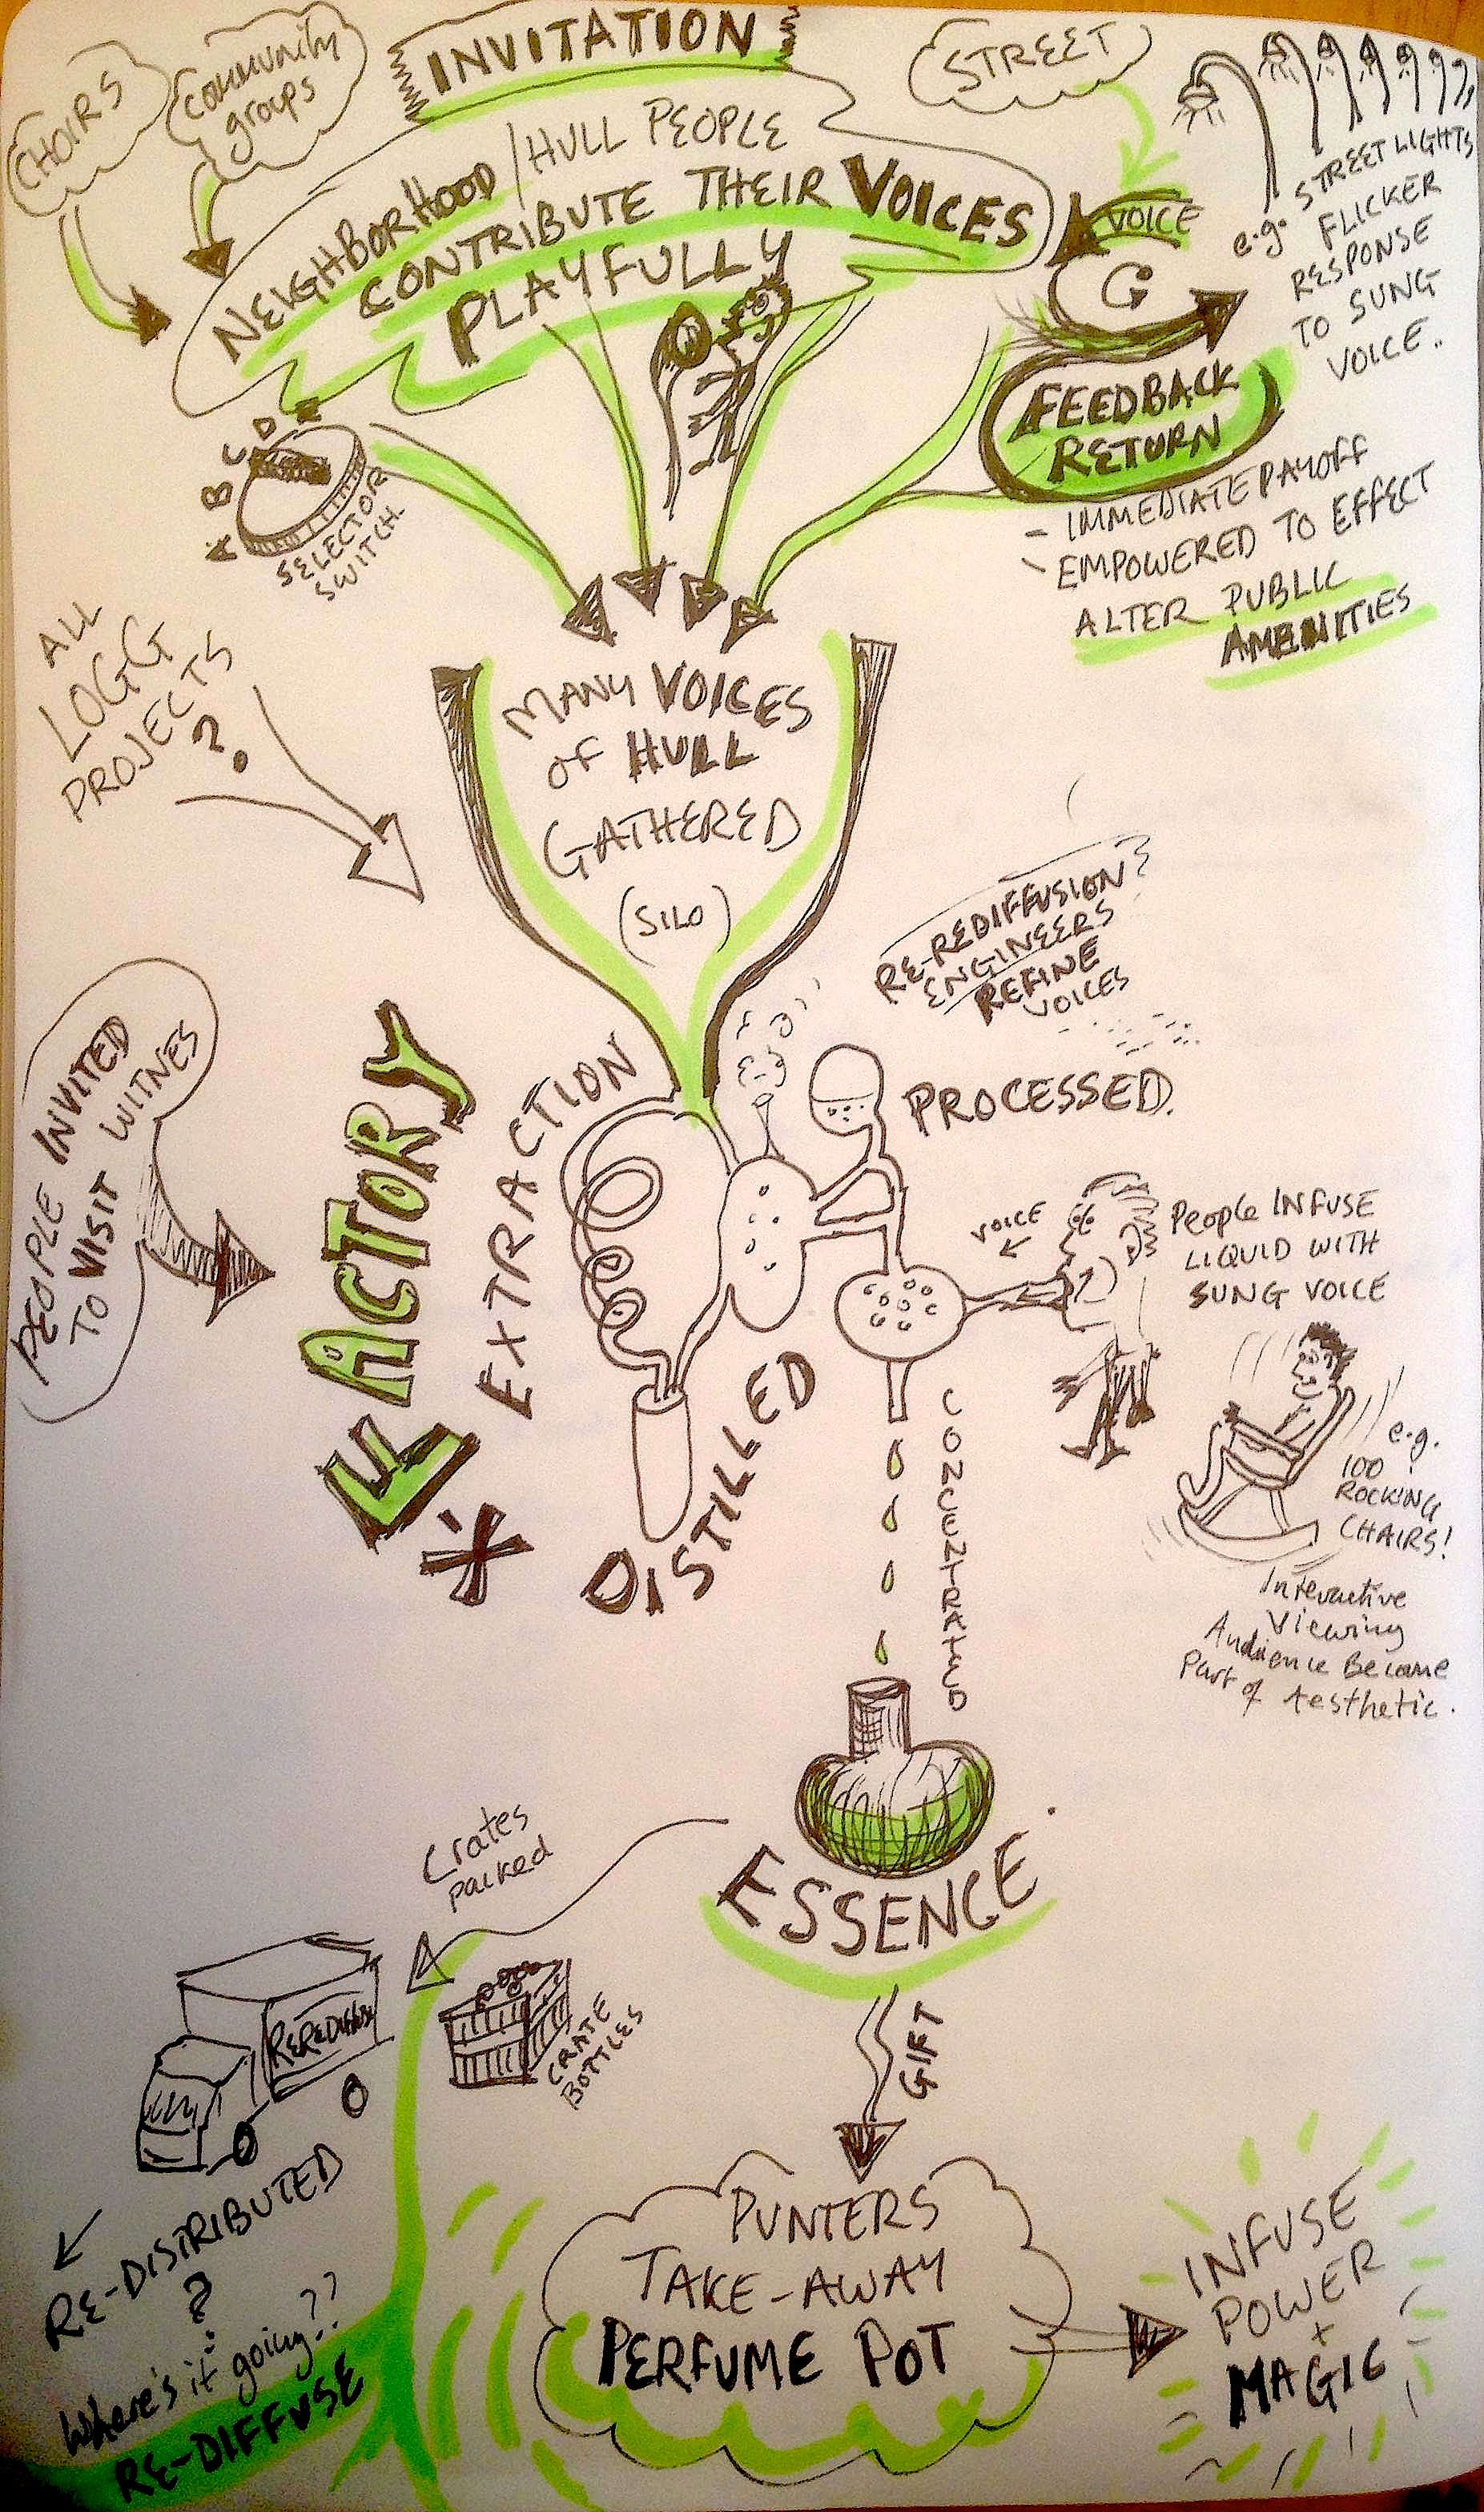 INVITATION
CHOIRS
COMMUNITY
groups
STREET
NEIGHBORHOOD/HULL PEOPLE
CONTRIBUTE THEIR VOICES
PLAYFULLY
VOICE
e.g. STREET LIGHTS
FLICKER
RESPONSE
TO SUNG
VOICE..
FEEDBACK
RETURN
- IMMEDIATE PAYOFF
- EMPOWERED TO EFFECT
ALTER PUBLIC
AMENITIES
A B C D E
SELECTOR
SWITCH
ALL
LOGG
PROJECTS
?
MANY VOICES
OF HULL
GATHERED
(SILO)
RE-REDIFFUSION
ENGINEERS
REFINE
VOICES
PEOPLE INVITED
TO VISIT WITNES
FACTORY
*
EXTRACTION
PROCESSED.
VOICE
PEOPLE INFUSE
LIQUID WITH
SUNG VOICE
DISTILLED
CONCENTRATED
e.g.
100
ROCKING
CHAIRS!
Interactive
Viewing
Audience Become
Part of Aesthetic.
ESSENCE
Crates
packed
REREDIFFUSION
CRATE
BOTTLES
GIFT
RE-DISTRIBUTED
?
Where's it going??
RE-DIFFUSE
PUNTERS
TAKE-AWAY
PERFUME POT
INFUSE
POWER
+
MAGIC